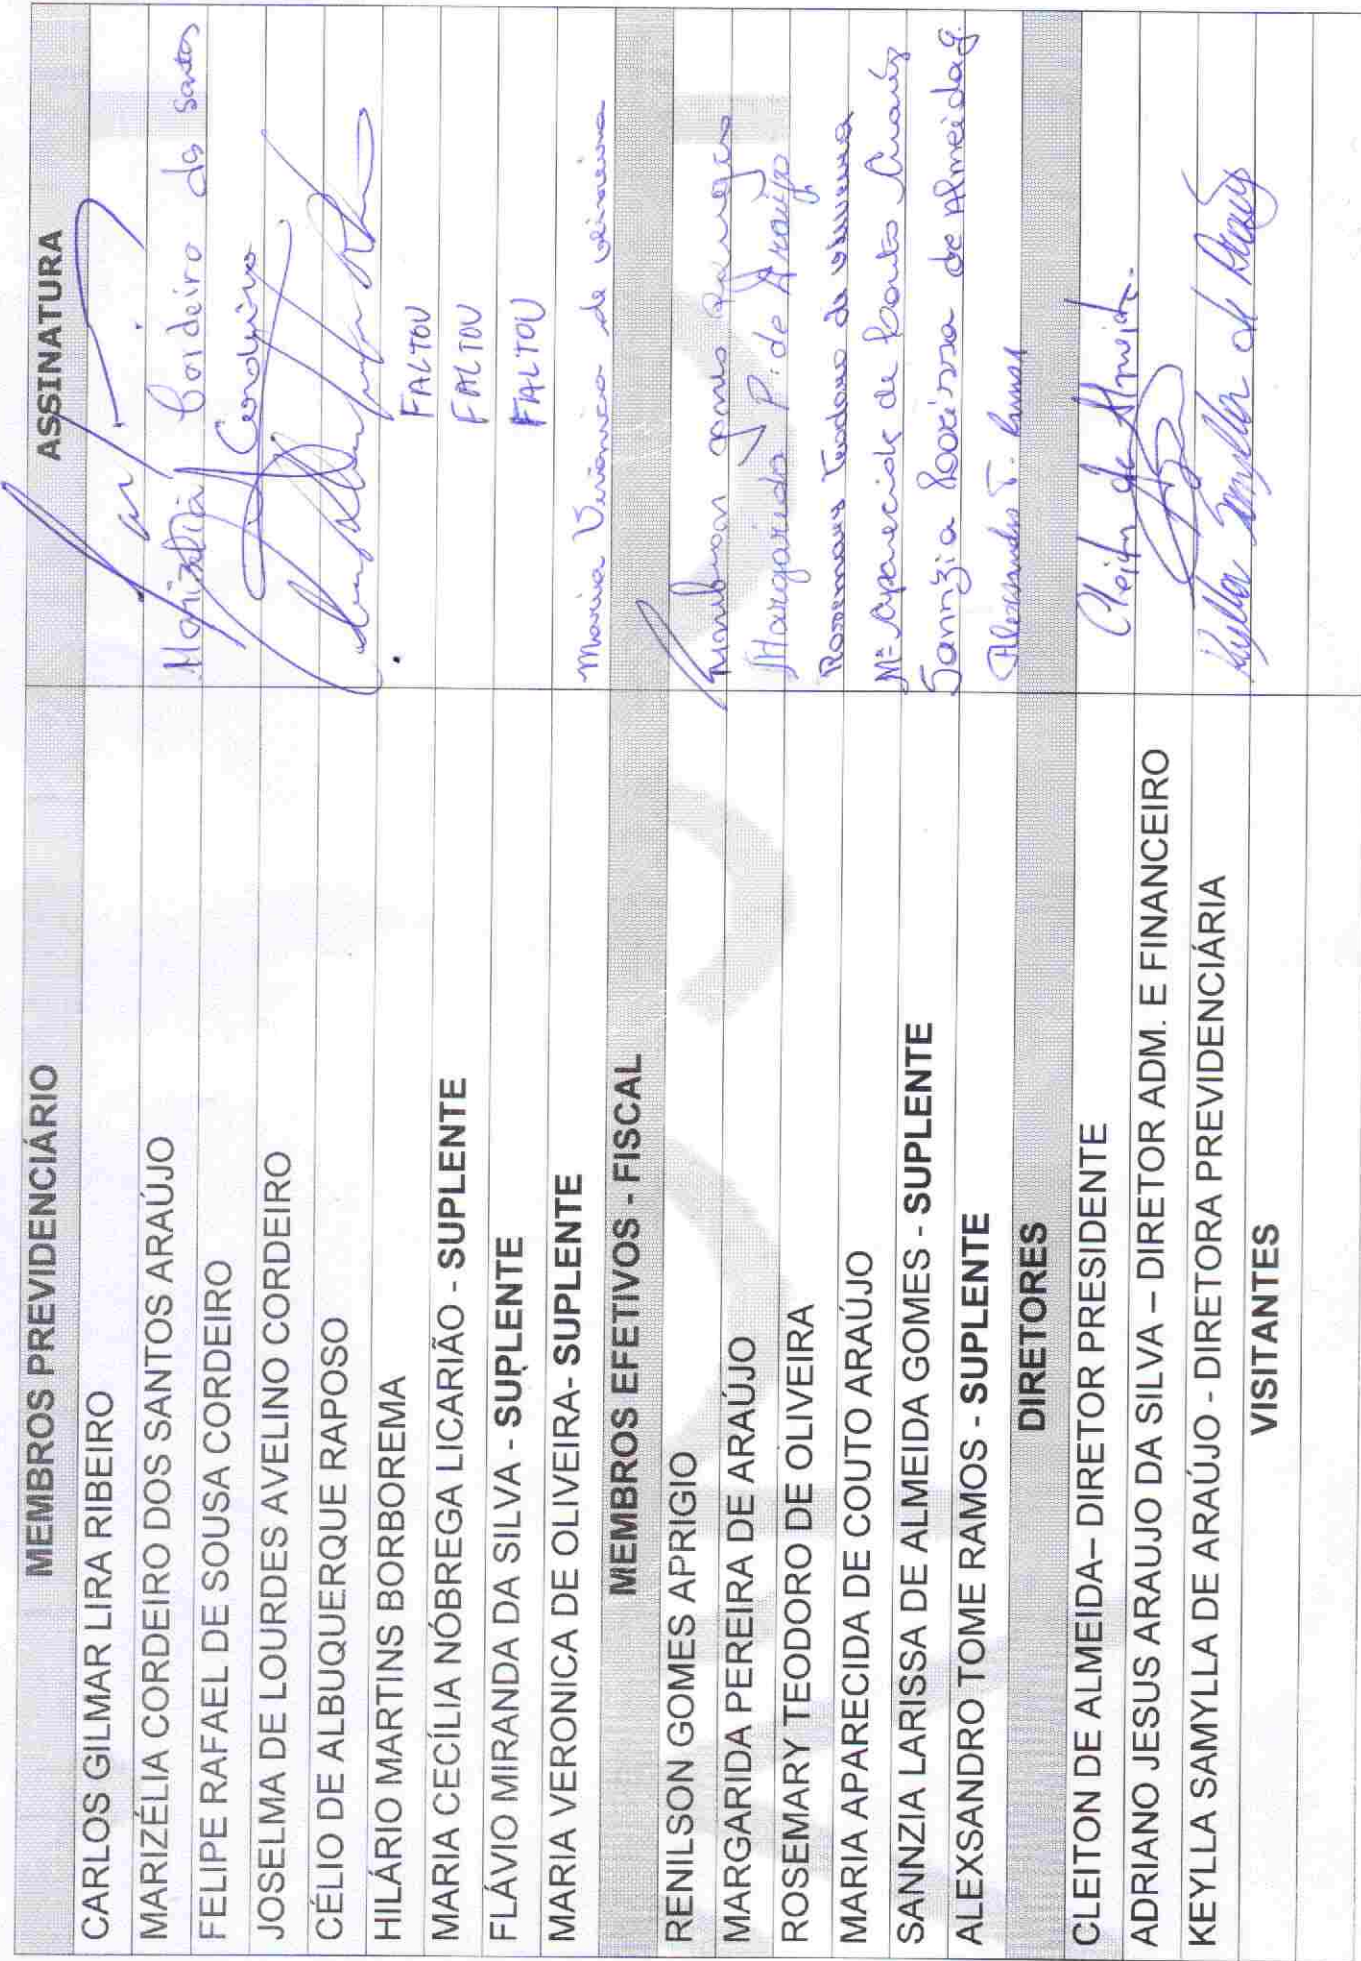 MEMBROS PREVIDENCIÁRIO ASSINATURA
CARLOS GILMAR LIRA RIBEIRO
MARIZÉLIA CORDEIRO DOS SANTOS ARAÚJO Marizélia Cordeiro dos Santos
FELIPE RAFAEL DE SOUSA CORDEIRO Cordeiro
JOSELMA DE LOURDES AVELINO CORDEIRO
CÉLIO DE ALBUQUERQUE RAPOSO
HILÁRIO MARTINS BORBOREMA FALTOU
MARIA CECÍLIA NÓBREGA LICARIÃO - SUPLENTE FALTOU
FLÁVIO MIRANDA DA SILVA - SUPLENTE FALTOU
MARIA VERONICA DE OLIVEIRA- SUPLENTE Maria Verônica de Oliveira
MEMBROS EFETIVOS - FISCAL
RENILSON GOMES APRIGIO
MARGARIDA PEREIRA DE ARAÚJO Margarida P. de Araújo
ROSEMARY TEODORO DE OLIVEIRA Rosemary Teodoro de Oliveira
MARIA APARECIDA DE COUTO ARAÚJO Mª Aparecida de Couto Araújo
SANNZIA LARISSA DE ALMEIDA GOMES - SUPLENTE Sannzia Larissa de Almeida G.
ALEXSANDRO TOME RAMOS - SUPLENTE Alexsandro T. Ramos
DIRETORES
CLEITON DE ALMEIDA– DIRETOR PRESIDENTE Cleiton de Almeida
ADRIANO JESUS ARAUJO DA SILVA – DIRETOR ADM. E FINANCEIRO
KEYLLA SAMYLLA DE ARAÚJO - DIRETORA PREVIDENCIÁRIA Keylla Samylla de Araújo
VISITANTES